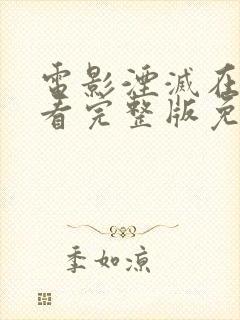 电影湮滅在
看完整版免
季如凉